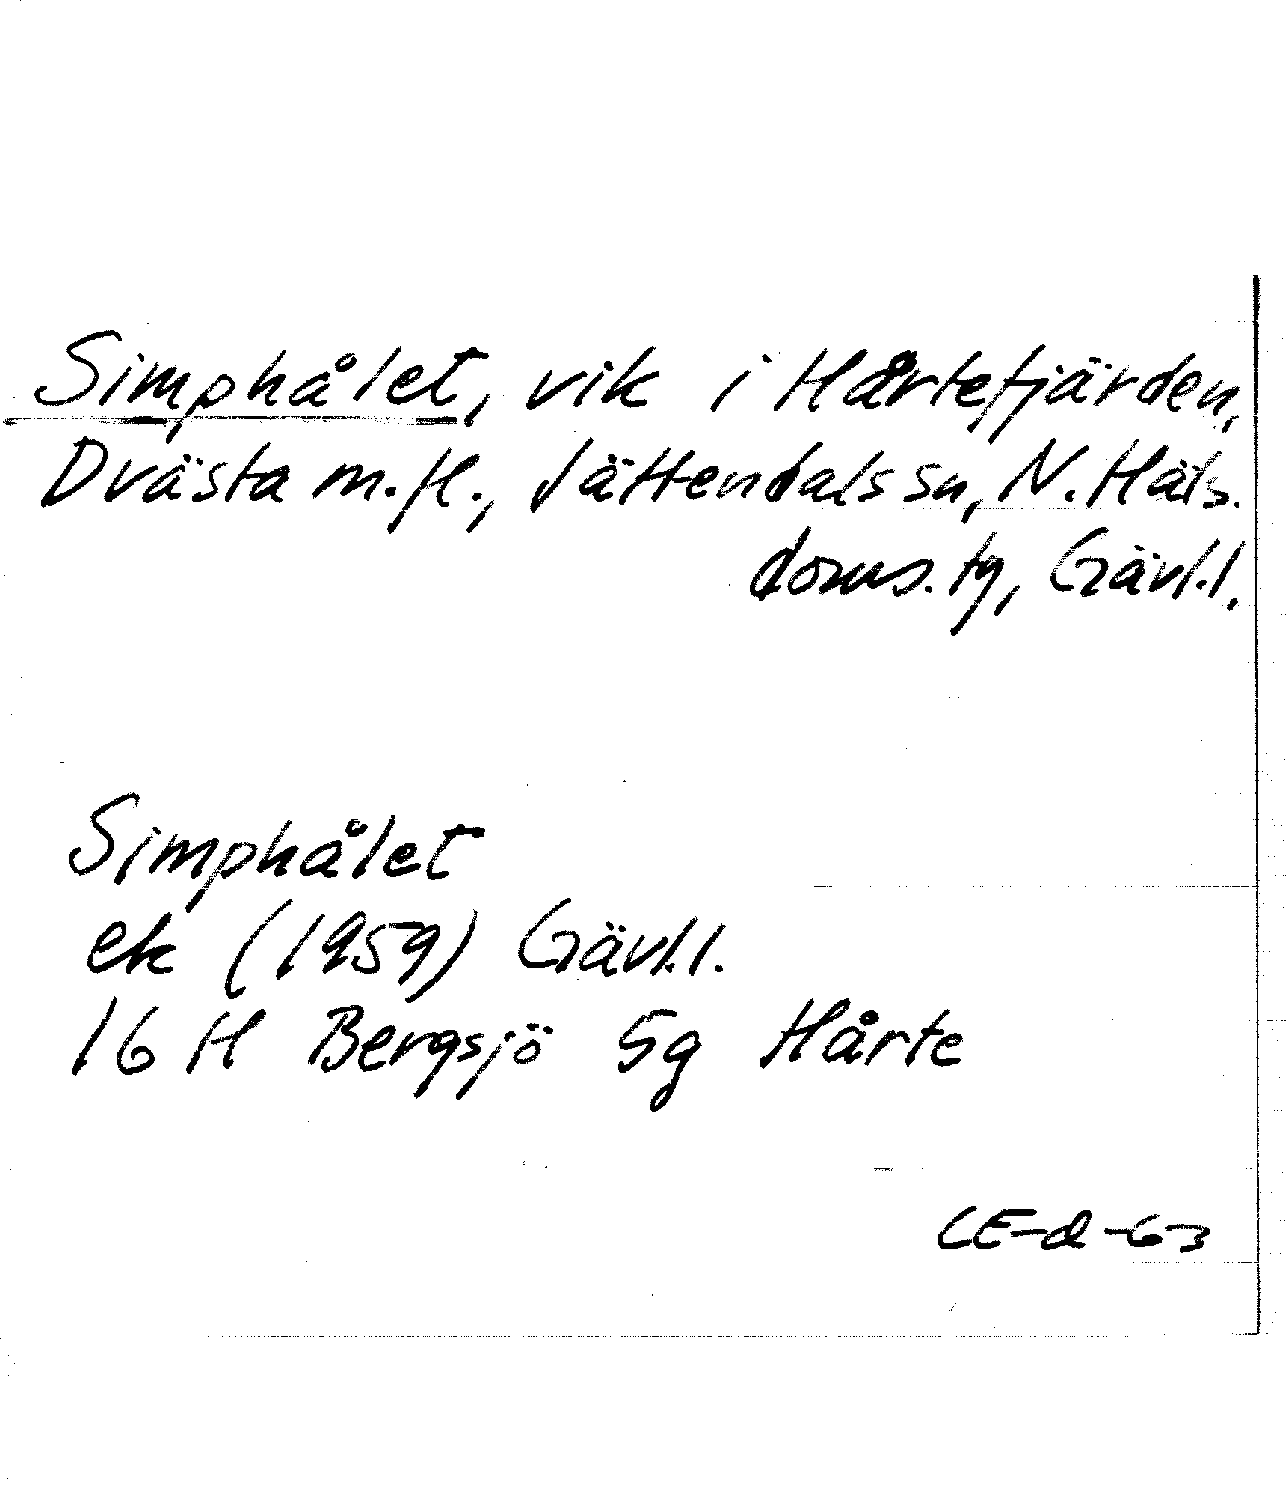 Simphålet, vik i Hårtefjärden,
Dvästa m.fl., Jättendals sn, N. Häls.
doms. tg, Gävl.l.
Simphålet
ek (1959) Gävl.l.
16 H Bergsjö 5g Hårte
CE-d-63